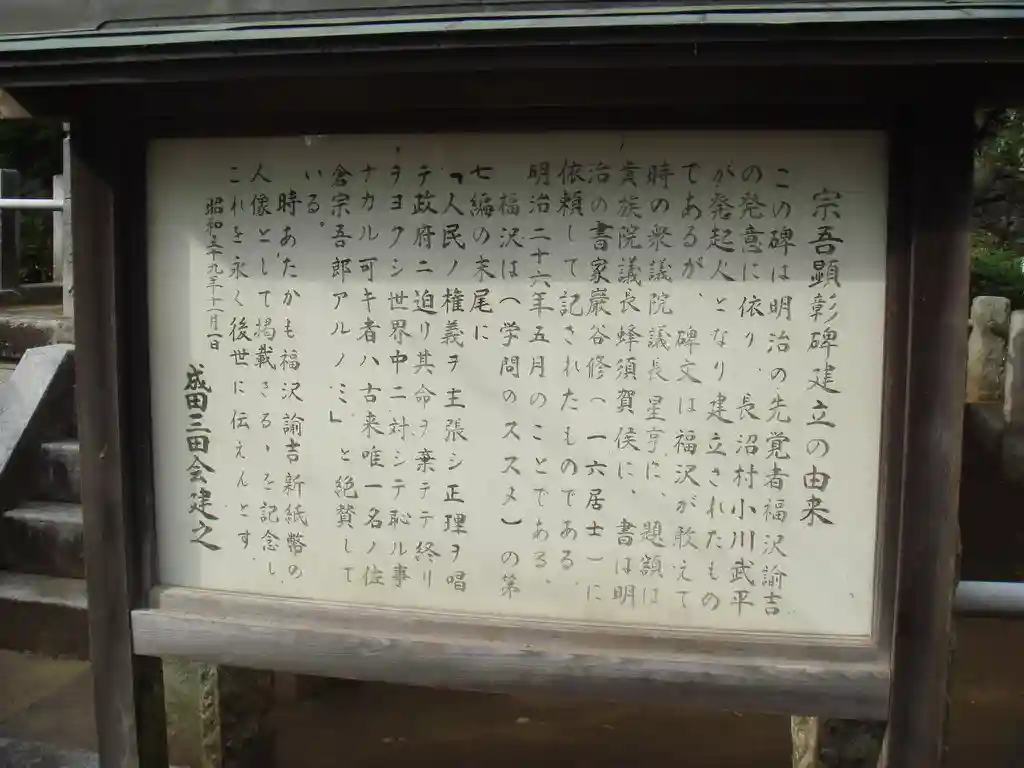 宗吾顕彰碑建立の由来
この碑は明治の先覚者福沢諭吉
の発意に依り、長沼村小川武平
が発起人となり建立されたもの
であるが、碑文は福沢が敢えて
時の衆議院議長星亨に、題額は
貴族院議長蜂須賀侯に、書は明
治の書家巌谷修へ一六居士一に
依頼して記されたものである、
明治二十六年五月のことである、
福沢は(学問のススメ)の第
七編の末尾に
「人民ノ権義ヲ主張シ正理ヲ唱
テ政府ニ迫リ其命ヲ棄テ終リ
ヲヨクシ世界中ニ対シテ恥ル事
ナカル可キ者ハ古来唯一名ノ佐
倉宗吾郎アルノミ」と絶賛して
いる。
時あたかも福沢諭吉新紙幣の
人像として掲載さるゝを記念し
これを永く後世に伝えんとす
昭和五十九年十一月一日
成田三田会建之